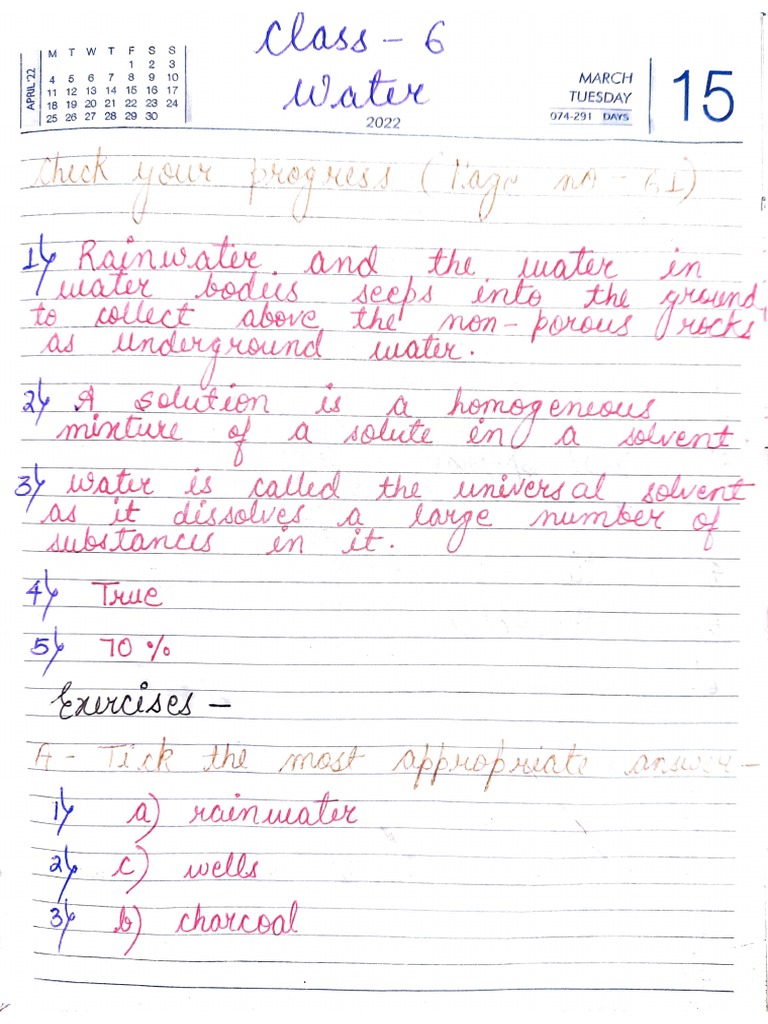 Class - 6
Water
APRIL '22
M T W T F S S
1 2 3
4 5 6 7 8 9 10
11 12 13 14 15 16 17
18 19 20 21 22 23 24
25 26 27 28 29 30
2022
MARCH
TUESDAY
074-291 DAYS
15
Check your progress (Page no - 61)
1) Rainwater and the water in
water bodies seeps into the ground
to collect above the non-porous rocks
as underground water.
2) A solution is a homogeneous
mixture of a solute in a solvent.
3) water is called the universal solvent
as it dissolves a large number of
substances in it.
4) True
5) 70 %
Exercises -
A - Tick the most appropriate answer -
1) a) rainwater
2) c) wells
3) b) charcoal